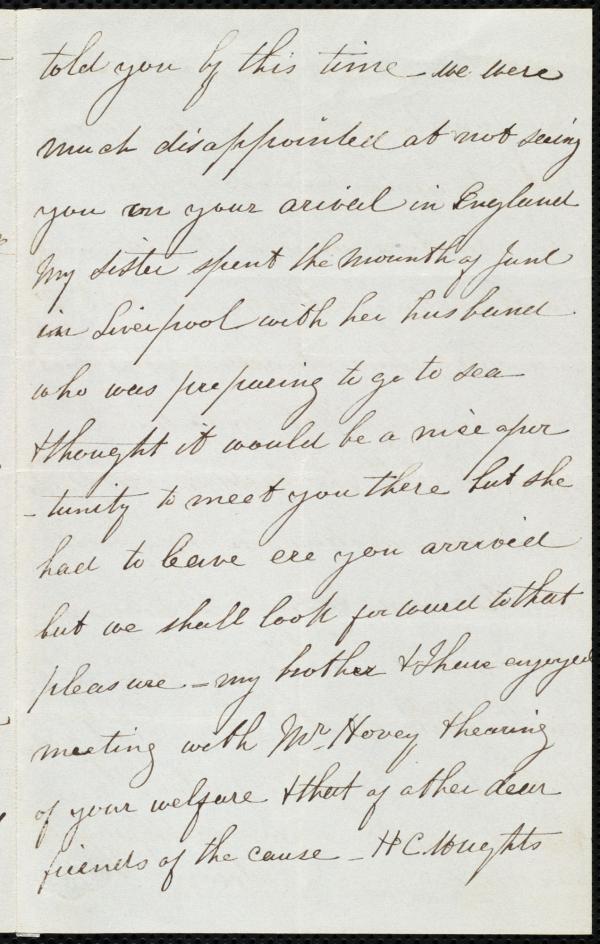 told you by this time - we were
much disappointed at not seeing
you on your arived in England
My sister spent the mounth of June
in Liverpool with her husband
who was prepairing to go to sea
& thought it would be a nise apor
-tunity to meet you there but she
had to leave ere you arrived
but we shall look forward to that
pleasure - my brother & I have enjoyed
meeting with Mr. Hovey & hearing
of your welfare & that of other dear
friends of the cause - H C Wrights